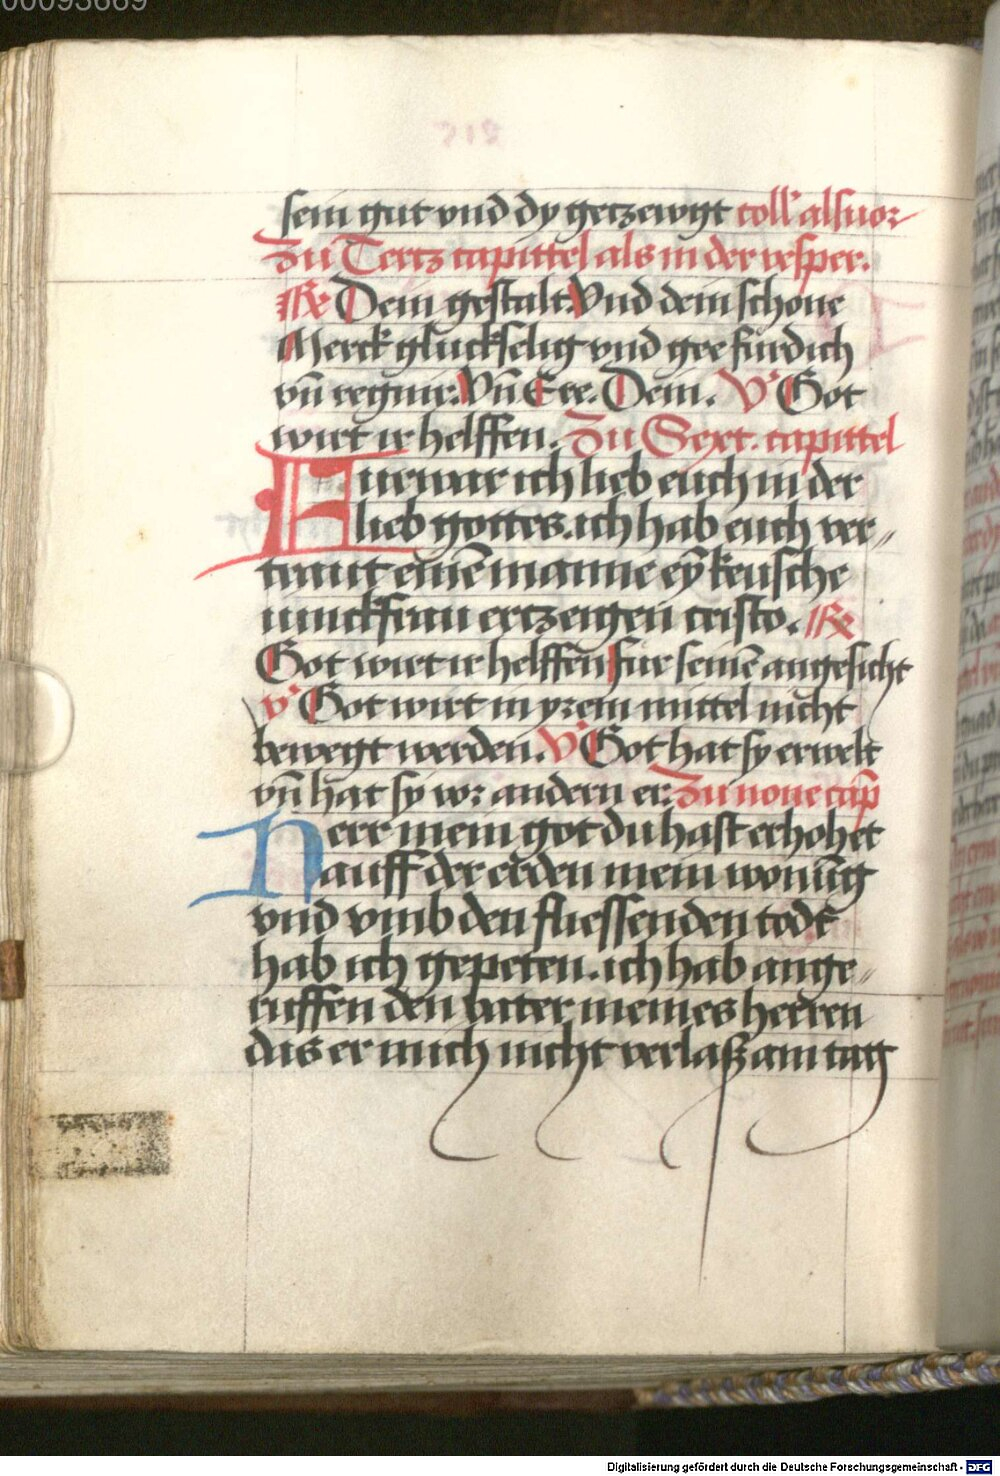 00093669
sein gut vnd dy getzewgt coll' als uor
Zu Tertz capittel als in der vesper.
R Dein gestalt. Vnd dein schone
Merck gluckselig vnd gee furdich
vn̄ regnir. Vn̄ Eer. Dein. V Got
wirt ir helffen. Zu Sext. capittel
Furwar ich lieb euch in der
lieb gottes. ich hab euch ver⸗
traut einē manne ey̅ keusche
iunckfrau ertzeigen cristo. R
Got wirt ir helffen fur seinē angesicht
v Got wirt in yrem mittel nicht
bewegt werden. V Got hat sy erwelt
vn̄ hat sy vor andern er. Zu none cap̄
Herr mein got du hast erhohet
auff der erden mein wonūg
vnd vmb den fliessenden todt
hab ich gepeten. ich hab ange⸗
ruffen den vater meines herren
das er mich nicht verlaß am tag
Digitalisierung gefördert durch die Deutsche Forschungsgemeinschaft - DFG